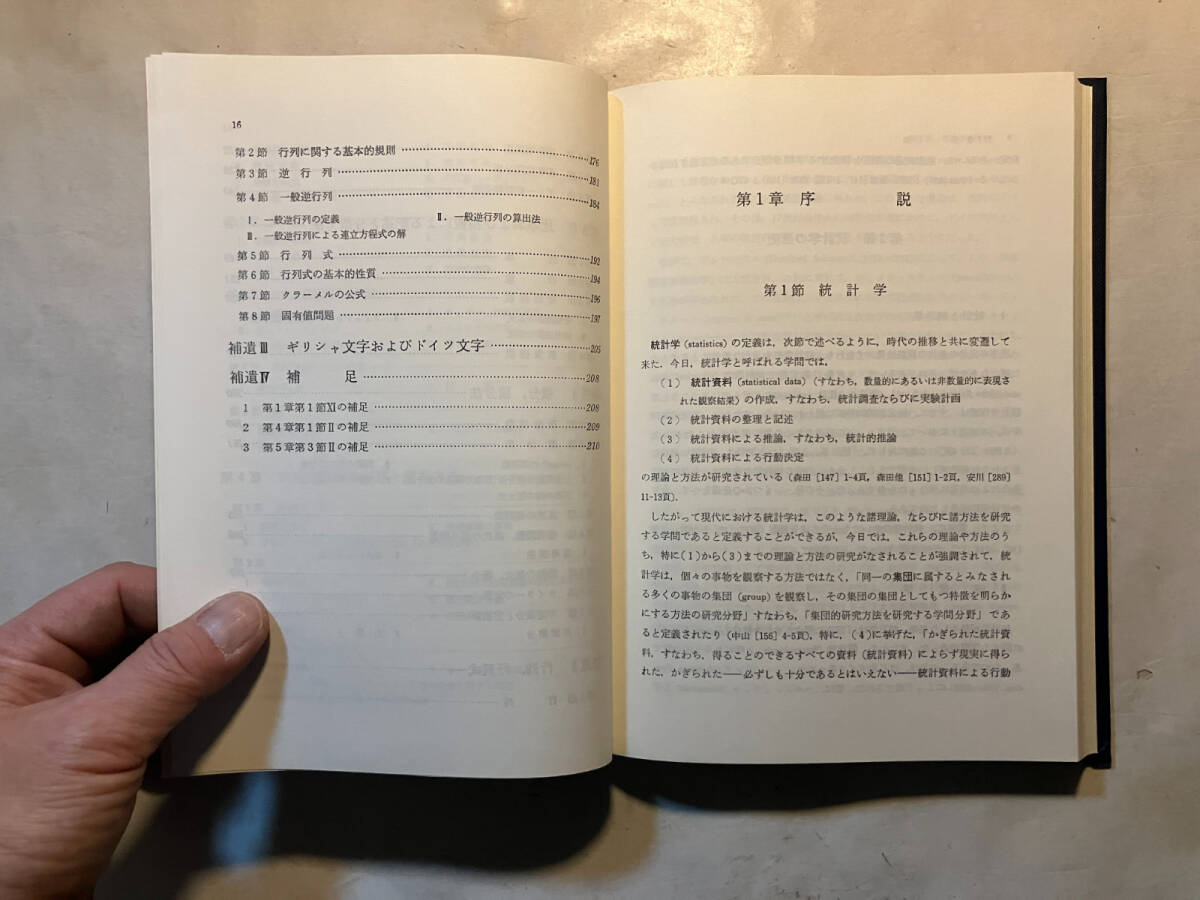 16
第2節 行列に関する基本的規則……176
第3節 逆行列……181
第4節 一般逆行列……184
Ⅰ.一般逆行列の定義 Ⅱ.一般逆行列の算出法
Ⅲ.一般逆行列による連立方程式の解
第5節 行列式……192
第6節 行列式の基本的性質……194
第7節 クラーメルの公式……196
第8節 固有値問題……197
補遺Ⅲ ギリシャ文字およびドイツ文字……205
補遺Ⅳ 補足……208
1 第1章第1節Ⅺの補足……208
2 第4章第1節Ⅱの補足……209
3 第5章第3節Ⅱの補足……210
第1章 序説
第1節 統計学
統計学(statistics)の定義は,次節で述べるように,時代の推移と共に変遷して
来た.今日,統計学と呼ばれる学問では,
(1) 統計資料(statistical data)(すなわち,数量的にあるいは非数量的に表現さ
れた観察結果)の作成,すなわち,統計調査ならびに実験計画
(2) 統計資料の整理と記述
(3) 統計資料による推論,すなわち,統計的推論
(4) 統計資料による行動決定
の理論と方法が研究されている(森田[147]1-4頁,森田他[151]1-2頁,安川[289]
11-13頁).
したがって現代における統計学は,このような諸理論,ならびに諸方法を研究
する学問であると定義することができるが,今日では,これらの理論や方法のう
ち,特に(1)から(3)までの理論と方法の研究がなされることが強調されて,統
計学は,個々の事物を観察する方法ではなく,「同一の集団に属するとみなされ
る多くの事物の集団(group)を観察し,その集団の集団としてもつ特徴を明らか
にする方法の研究分野」すなわち,「集団的研究方法を研究する学問分野」であ
ると定義されたり(中山[156]4-5頁),特に,(4)に挙げた,「かぎられた統計資
料,すなわち,得ることのできるすべての資料(統計資料)によらず現実に得ら
れた,かぎられた――必ずしも十分であるとはいえない――統計資料による行動